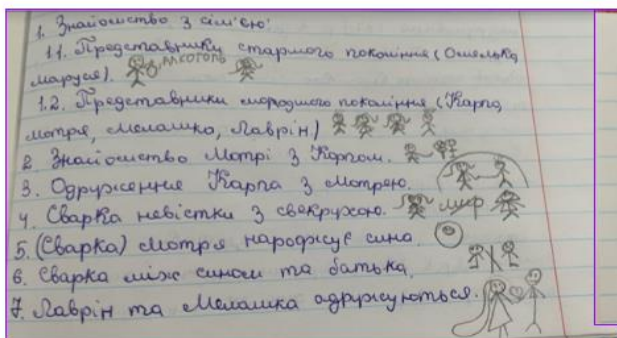 1. Знайомство з сім'єю:
1.1. Представники старшого покоління (Омелько,
Маруся). Алкоголь
1.2. Представники молодшого покоління (Карпо,
Мотря, Мелашка, Лаврін)
2. Знайомство Мотрі з Карпом.
3. Одруження Карпа з Мотрею.
4. Сварка невістки з свекрухою. мир
5. (Сварка) Мотря народжує сина.
6. Сварка між сином та батька.
7. Лаврін та Мелашка одружуються.